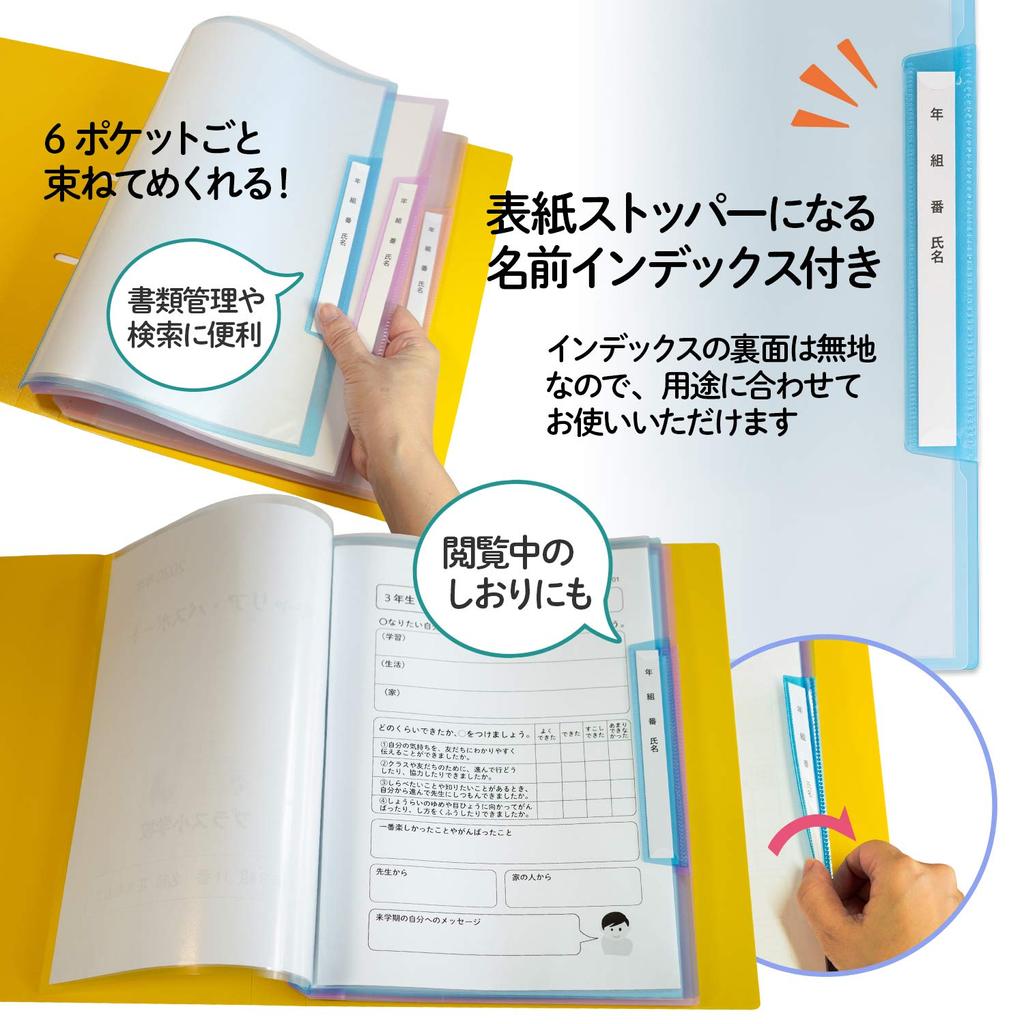 6ポケットごと
束ねてめくれる!
書類管理や
検索に便利
年 組 番 氏名
年 組 番 氏名
年 組 番 氏名
表紙ストッパーになる
名前インデックス付き
インデックスの裏面は無地
なので、用途に合わせて
お使いいただけます
年 組 番 氏名
閲覧中の
しおりにも
3年生
○なりたい自分
(学習)
(生活)
(家)
どのくらいできたか、○をつけましょう。
よくできた
できた
すこしできた
あまりできなかった
①自分の気持ちを、友だちにわかりやすく
伝えることができましたか。
②クラスや友だちのために、進んで行どう
したり、協力したりできましたか。
③しらべたいことや知りたいことがあるとき、
自分から進んで先生にしつもんできましたか。
④しょうらいのゆめや目ひょうに向かってがん
ばったり、し方をくふうしたりできましたか。
一番楽しかったことやがんばったこと
先生から
家の人から
来学期の自分へのメッセージ
年 組 番 氏名
年 組 番